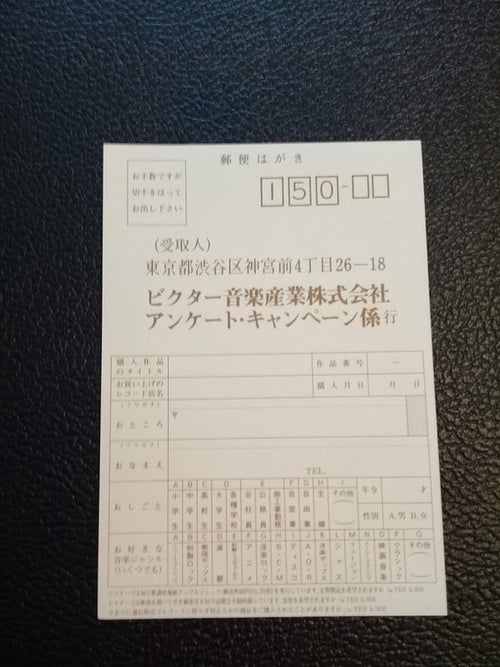 郵便はがき
お手数ですが
切手をはって
お出し下さい
150-
(受取人)
東京都渋谷区神宮前4丁目26—18
ビクター音楽産業株式会社
アンケート・キャンペーン係行
購入作品
のタイトル
作品番号 —
お買い上げの
レコード店名
購入月日 月 日
(フリガナ)
おところ 〒
(フリガナ)
おなまえ
TEL.
おしごと
A 小学生
B 中学生
C 高校生
D 大学生 各種学校
E 会社員 公務員 商工業勤務
F 自営業
G 自由業
H 主婦
I その他( )
年令 才
性別 A.男 B.女
お好きな
音楽ジャンル
(いくつでも)
B 和製ロック
D 演歌
F アニメ
G 洋楽ロック
H B・C・M
I ディスコ
J A・O・R
K 洋楽ポップス
L ジャズ
M フュージョン
O 映画音楽
P クラシック
Q その他( )